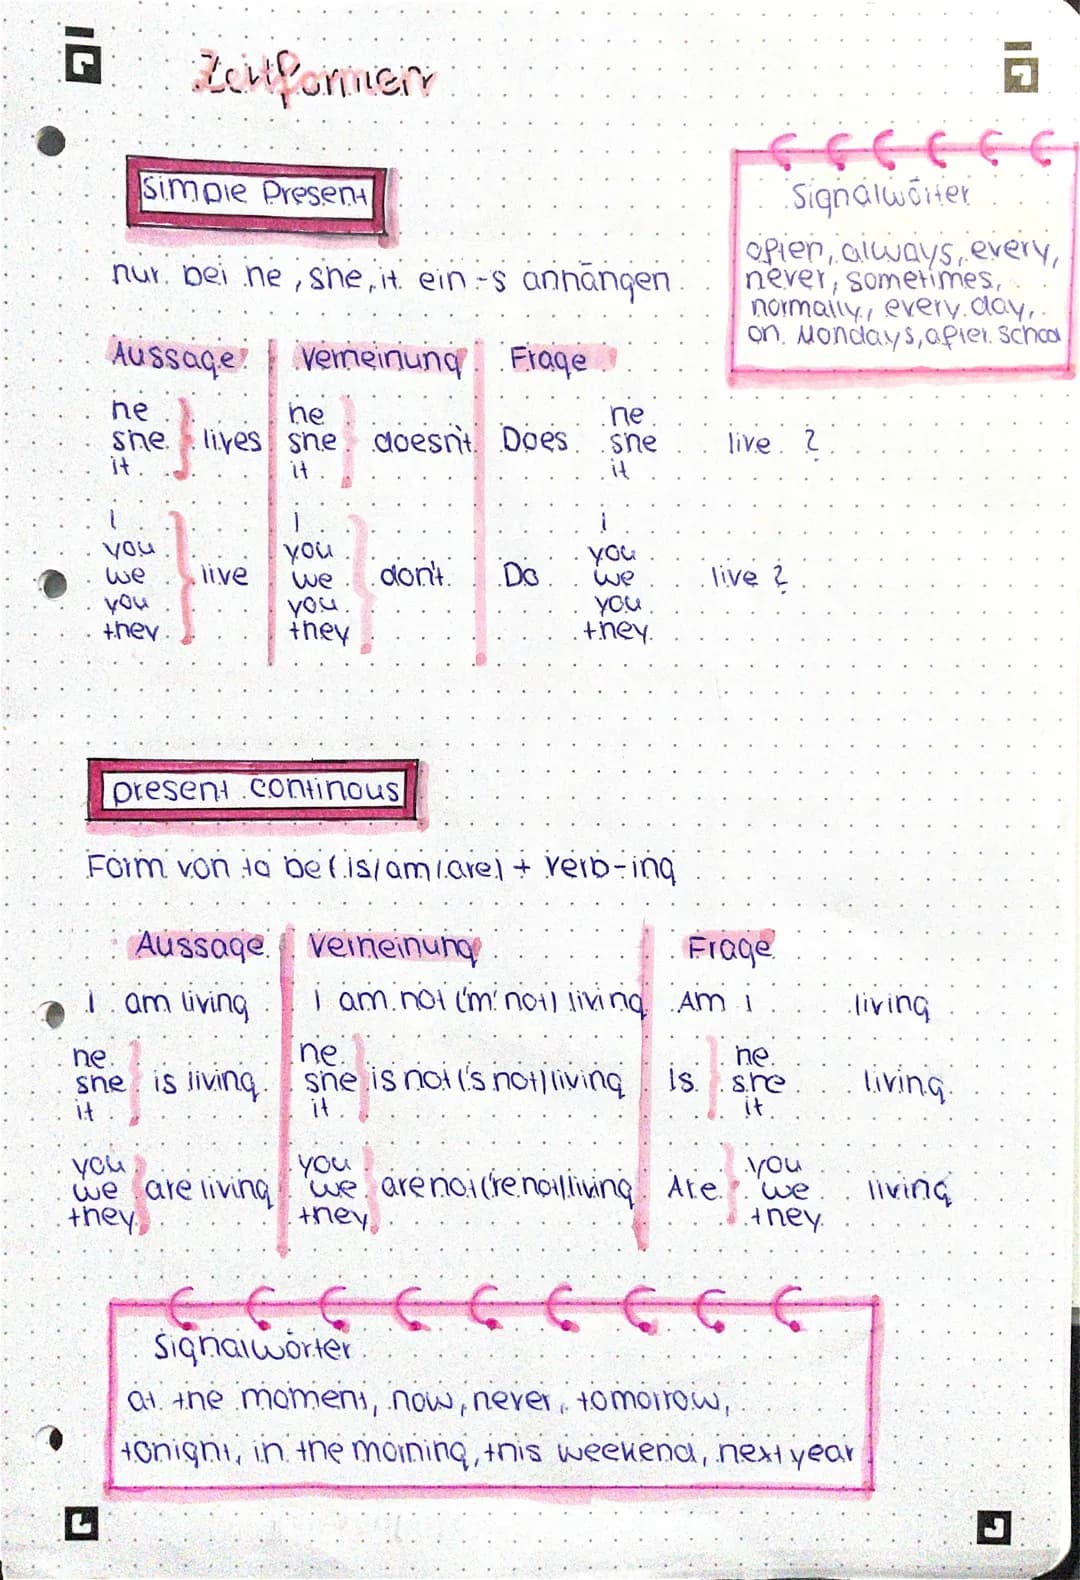 Zeitformen
simple Present
Signalwörter
often, always, every,
never, sometimes,
normally, every day,
on Mondays, after school
nur bei he, she, it ein -s anhängen
Aussage Verneinung Frage
he he he
she lives she doesn't Does she live ?
it it it
I I i
you you you
we live we don't Do we live ?
you you you
they they they
present continous
Form von to be (is/am/are) + verb-ing
Aussage Verneinung Frage
I am living I am not ('m not) living Am i living
he he he
she is living she is not ('s not) living is she living
it it it
you you you
we are living we are not ('re not) living Are we living
they they they
Signalwörter
at the moment, now, never, tomorrow,
tonight, in the morning, this weekend, next year